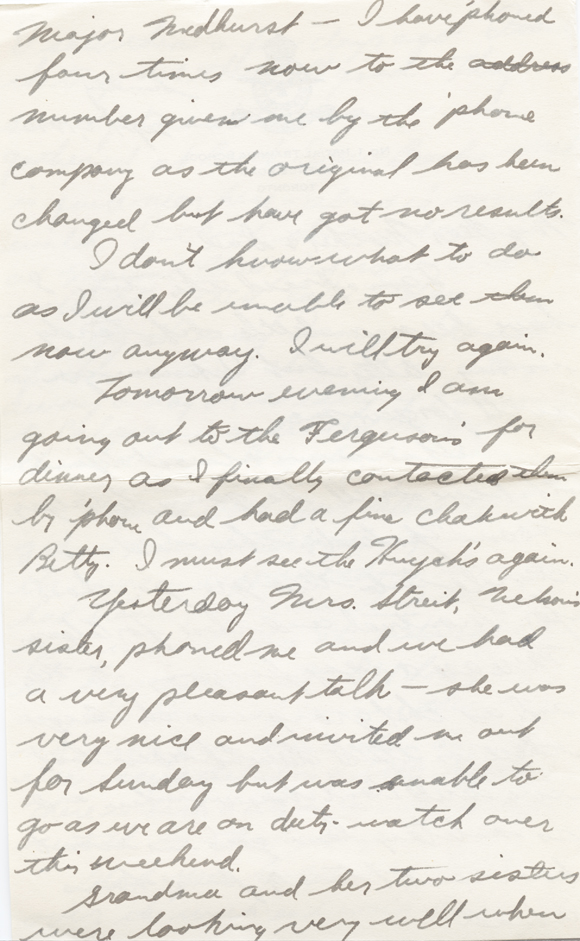 Major Medhurst – I have 'phoned
four times now to the address
number given me by the 'phone
company as the original has been
changed but have got no results.
I don't know what to do
as I will be unable to see them
now anyway. I will try again.
Tomorrow evening I am
going out to the Ferguson's for
dinner as I finally contacted them
by 'phone and had a fine chat with
Betty. I must see the again.
Yesterday Mrs. Streit, Nelson's
sister, phoned me and we had
a very pleasant talk – she was
very nice and invited me out
for Sunday but was unable to
go as we are on duty-watch over
this weekend.
Grandma and her two sisters
were looking very well when